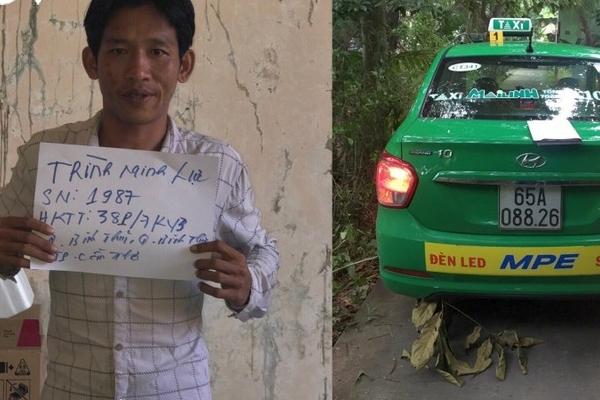 TRÌNH MINH LỰC
SN: 1987
HKTT: 38P/7 KV3
P. Bình Thủy, Q. Bình Thủy
TP. Cần Thơ
TAXI
1
TAXI
i10
65A
088.26
ĐÈN LED MPE S